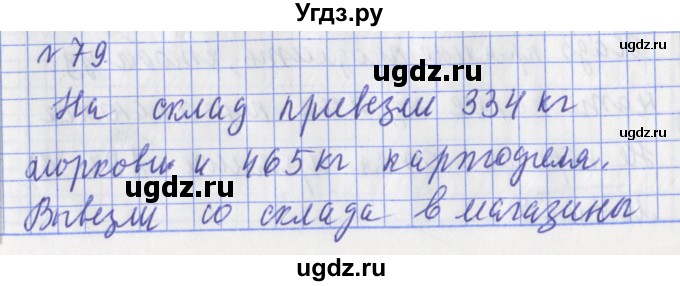 Угдз.ру
№ 79
ugdz.ru
На склад привезли 334 кг
моркови и 465 кг картофеля.
ugdz.ru
Вывезли со склада в магазины
ugdz.ru
ugdz.ru